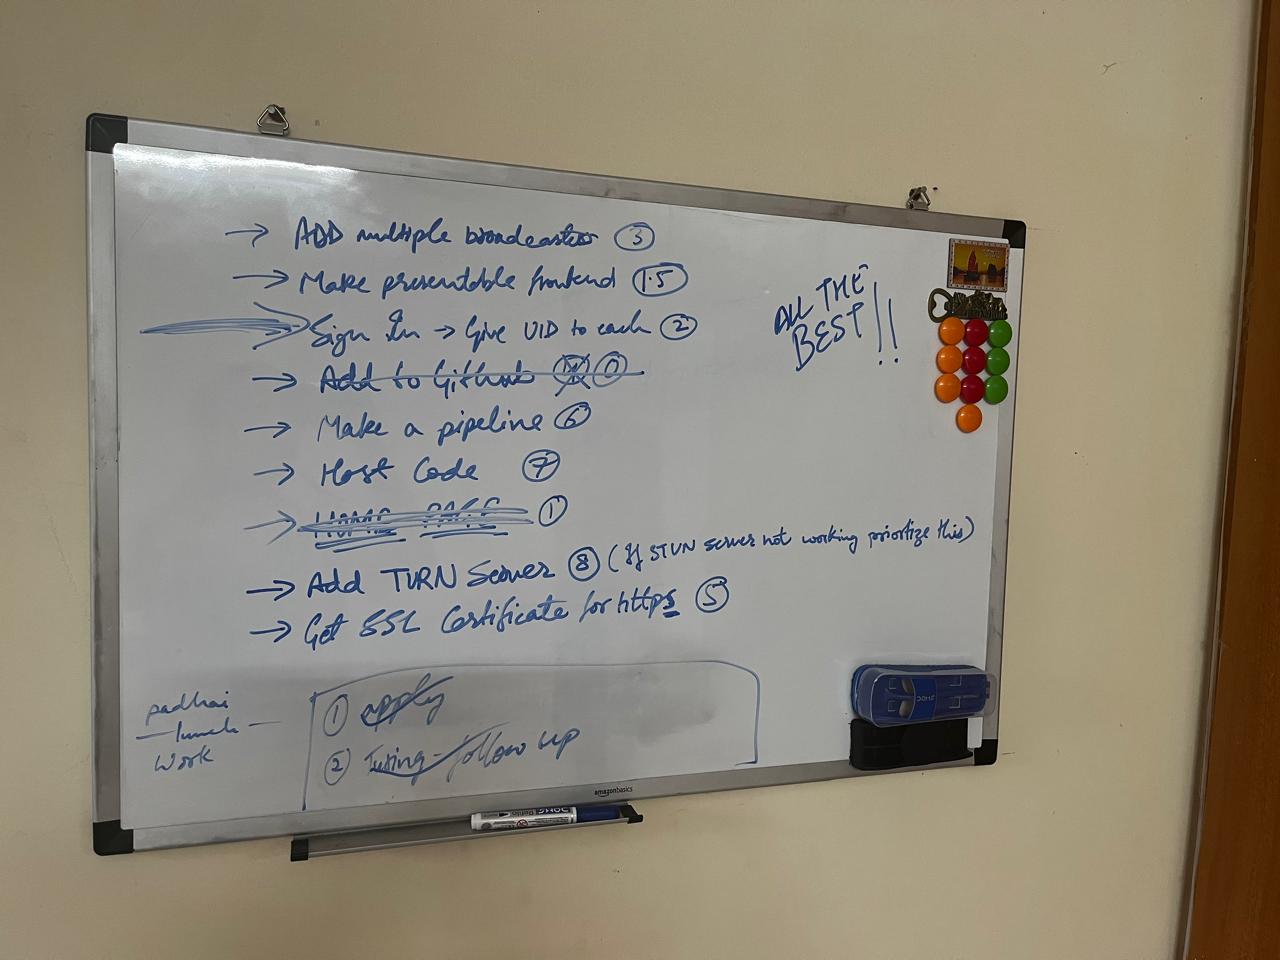 → ADD multiple broadcasters ③
→ Make presentable frontend 1.5
→ Sign In → Give UID to each ②
→ Add to Github ⓪
→ Make a pipeline ⑥
→ Host Code ⑦
→ HOME PAGE ①
→ Add TURN Server ⑧ (If STUN server not working priortize this)
→ Get SSL Certificate for https ⑤
ALL THE
BEST!!
padhai
— lunch —
work
① apply
② Turing - follow up
amazonbasics